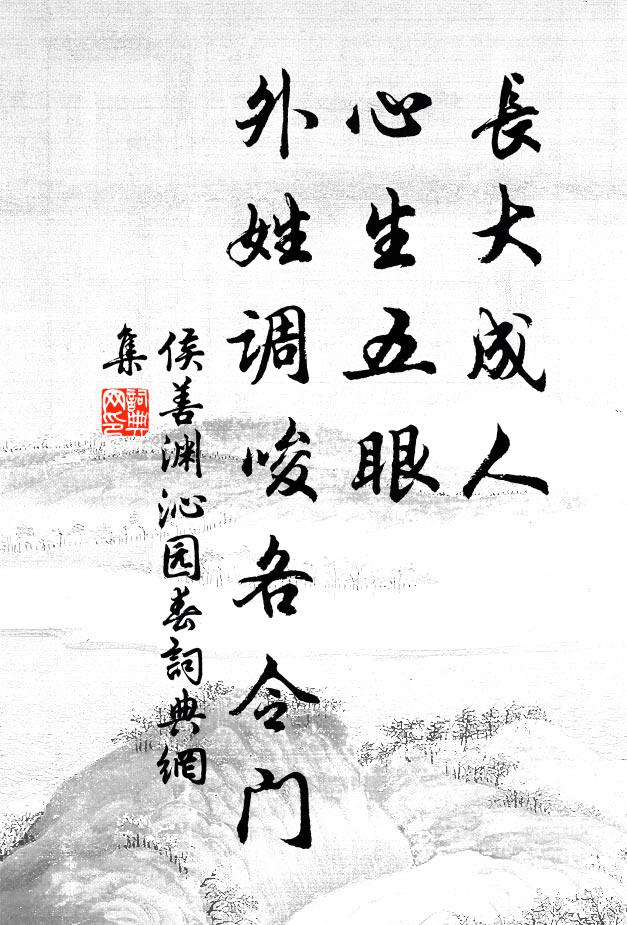 長大成人
心生五眼
外姓调唆各令門
侯善渊沁园春詞典網
集
詞典
网印